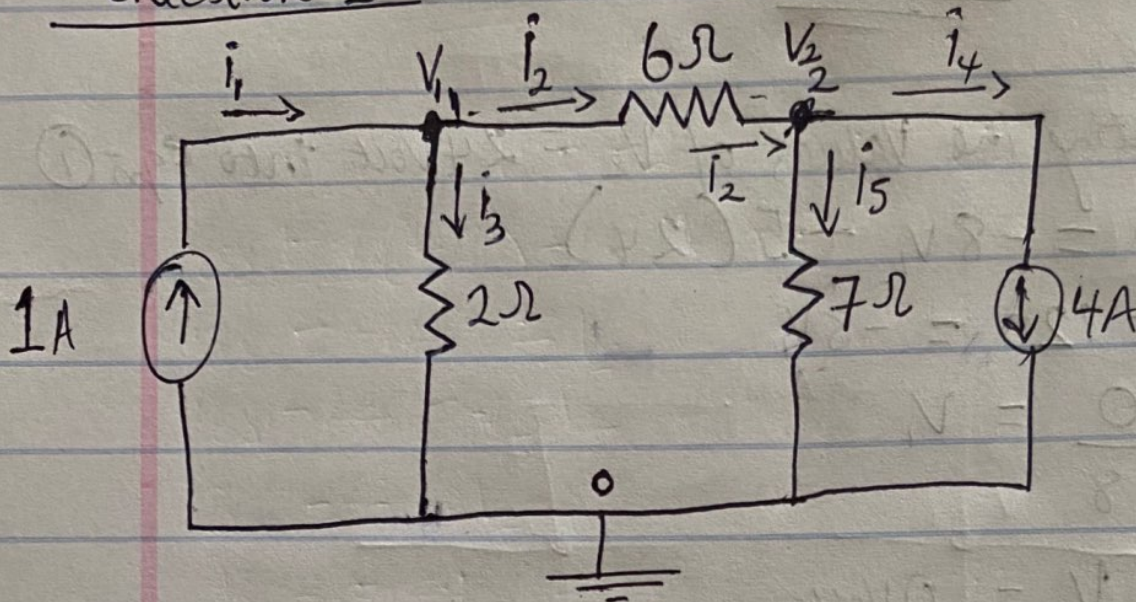 i₁
V₁
1
i₂
6Ω
V₂
2
i₄
i₂
i₃
i₅
1A
2Ω
7Ω
4A
0